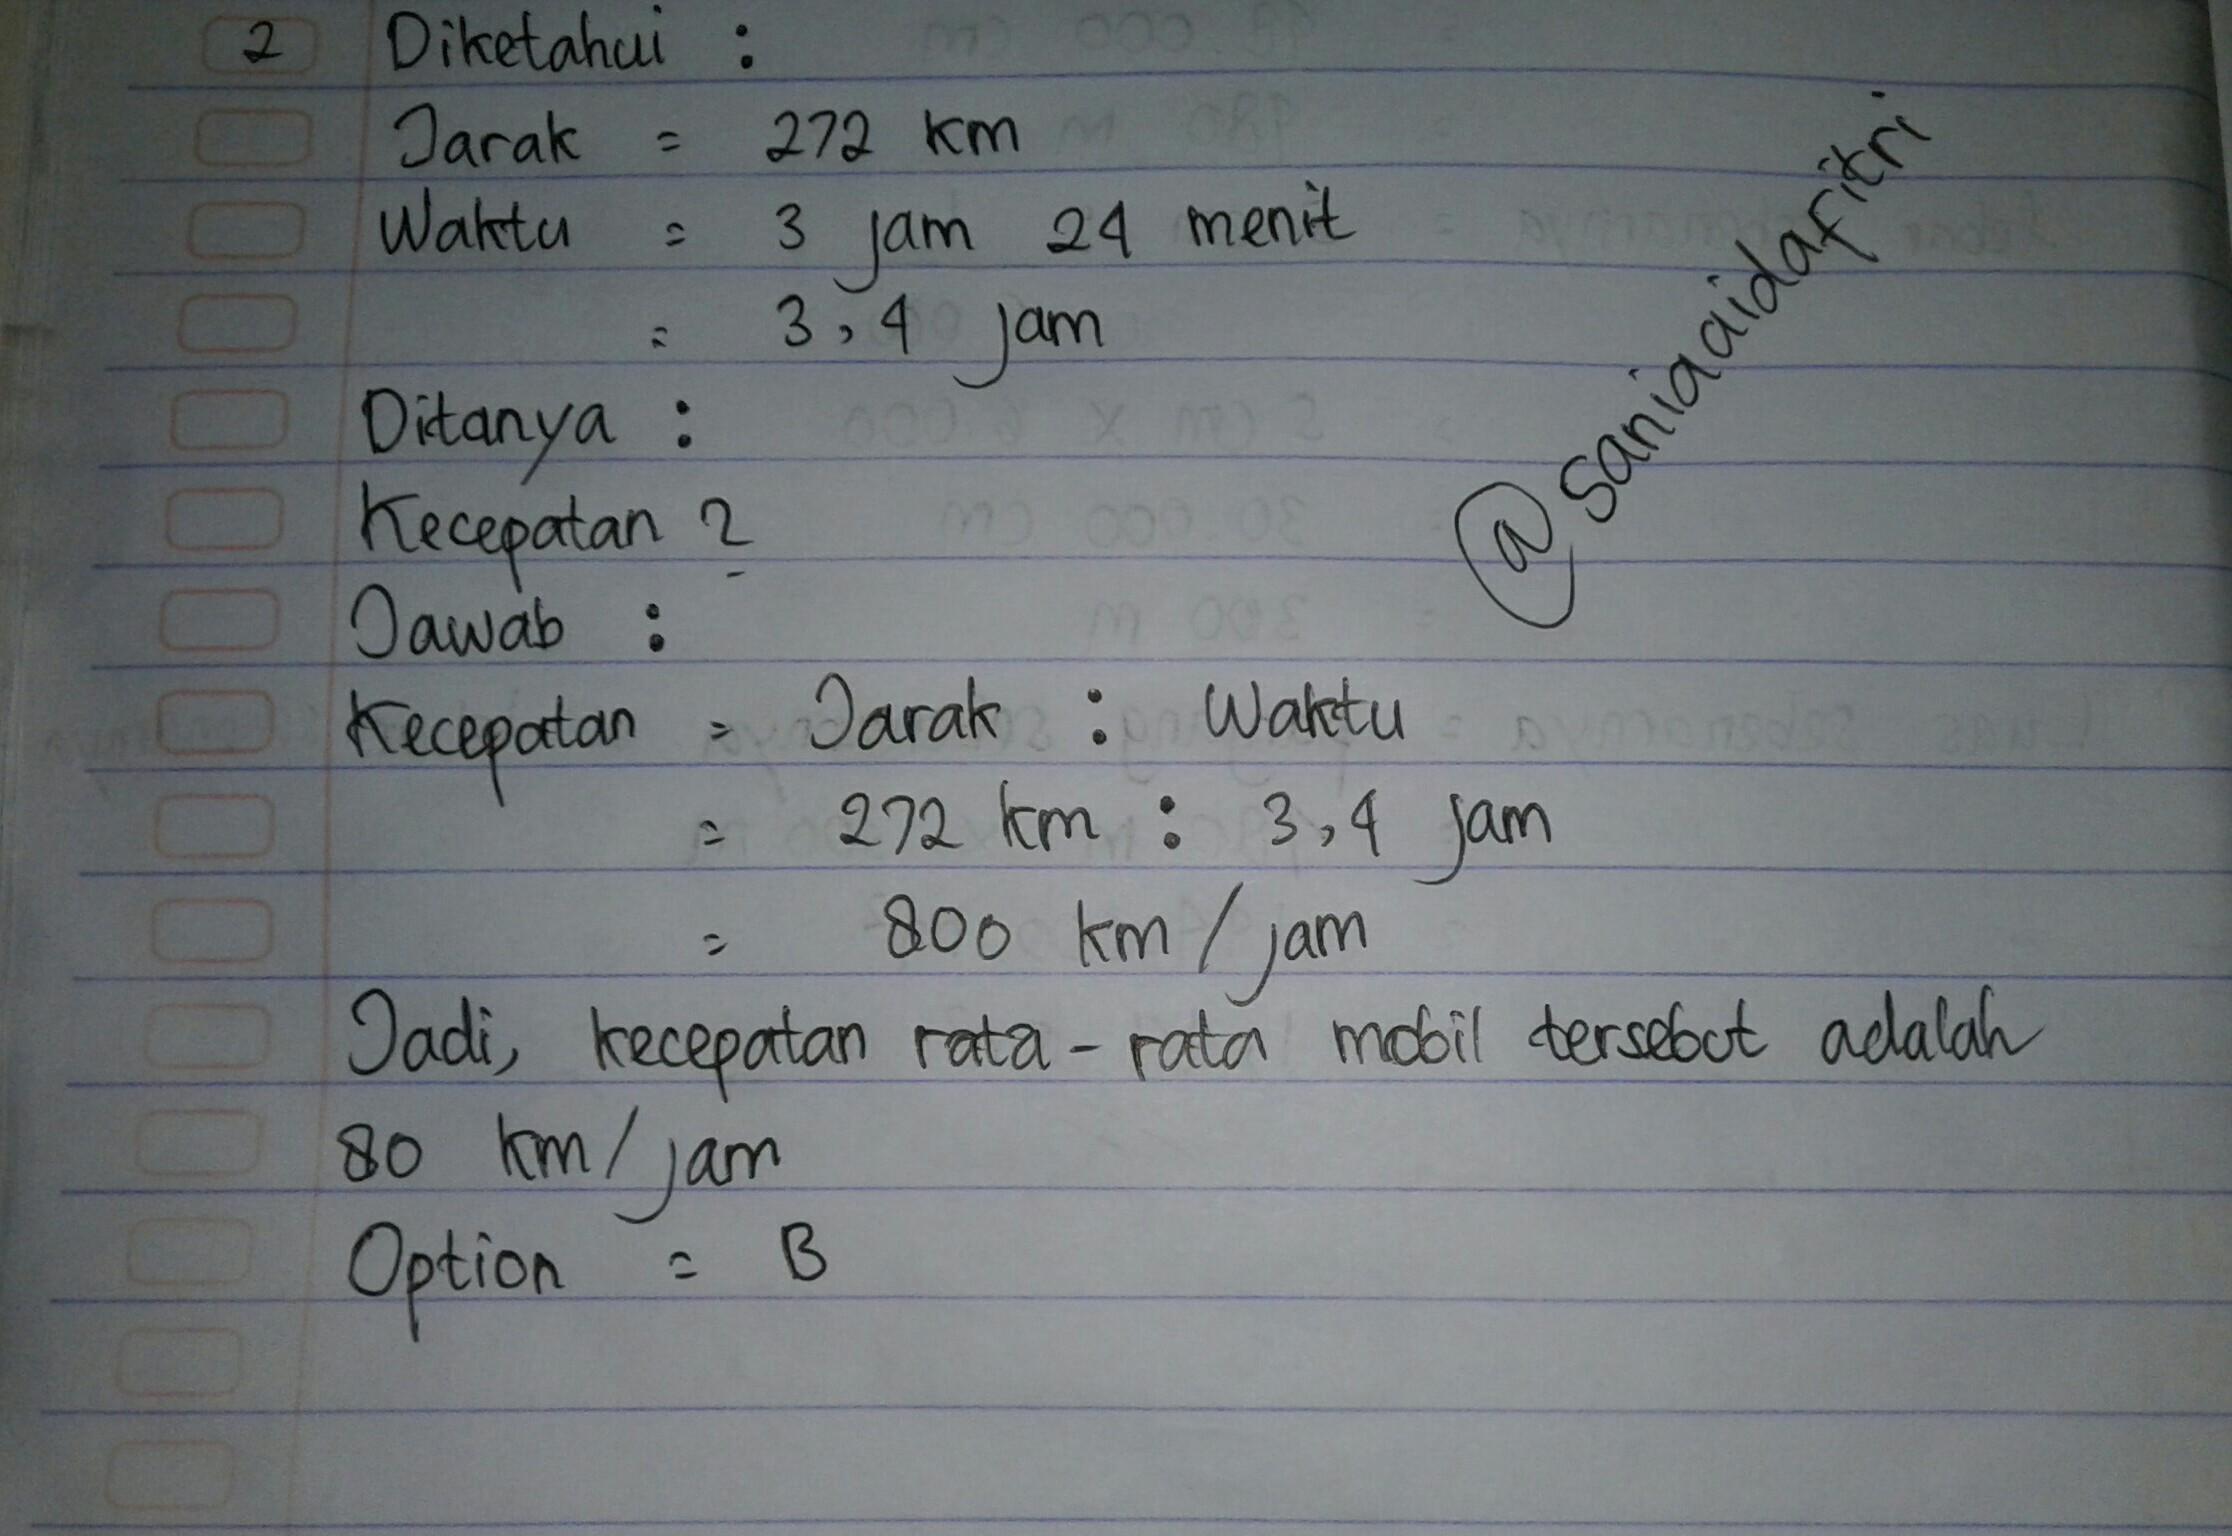 2 Diketahui :
Jarak = 272 km
Waktu = 3 jam 24 menit
= 3,4 jam
Ditanya :
Kecepatan ?
Jawab :
Kecepatan = Jarak : Waktu
= 272 km : 3,4 jam
= 800 km / jam
Jadi, kecepatan rata - rata mobil tersebut adalah
80 km / jam
Option = B
@saniaaidafitri